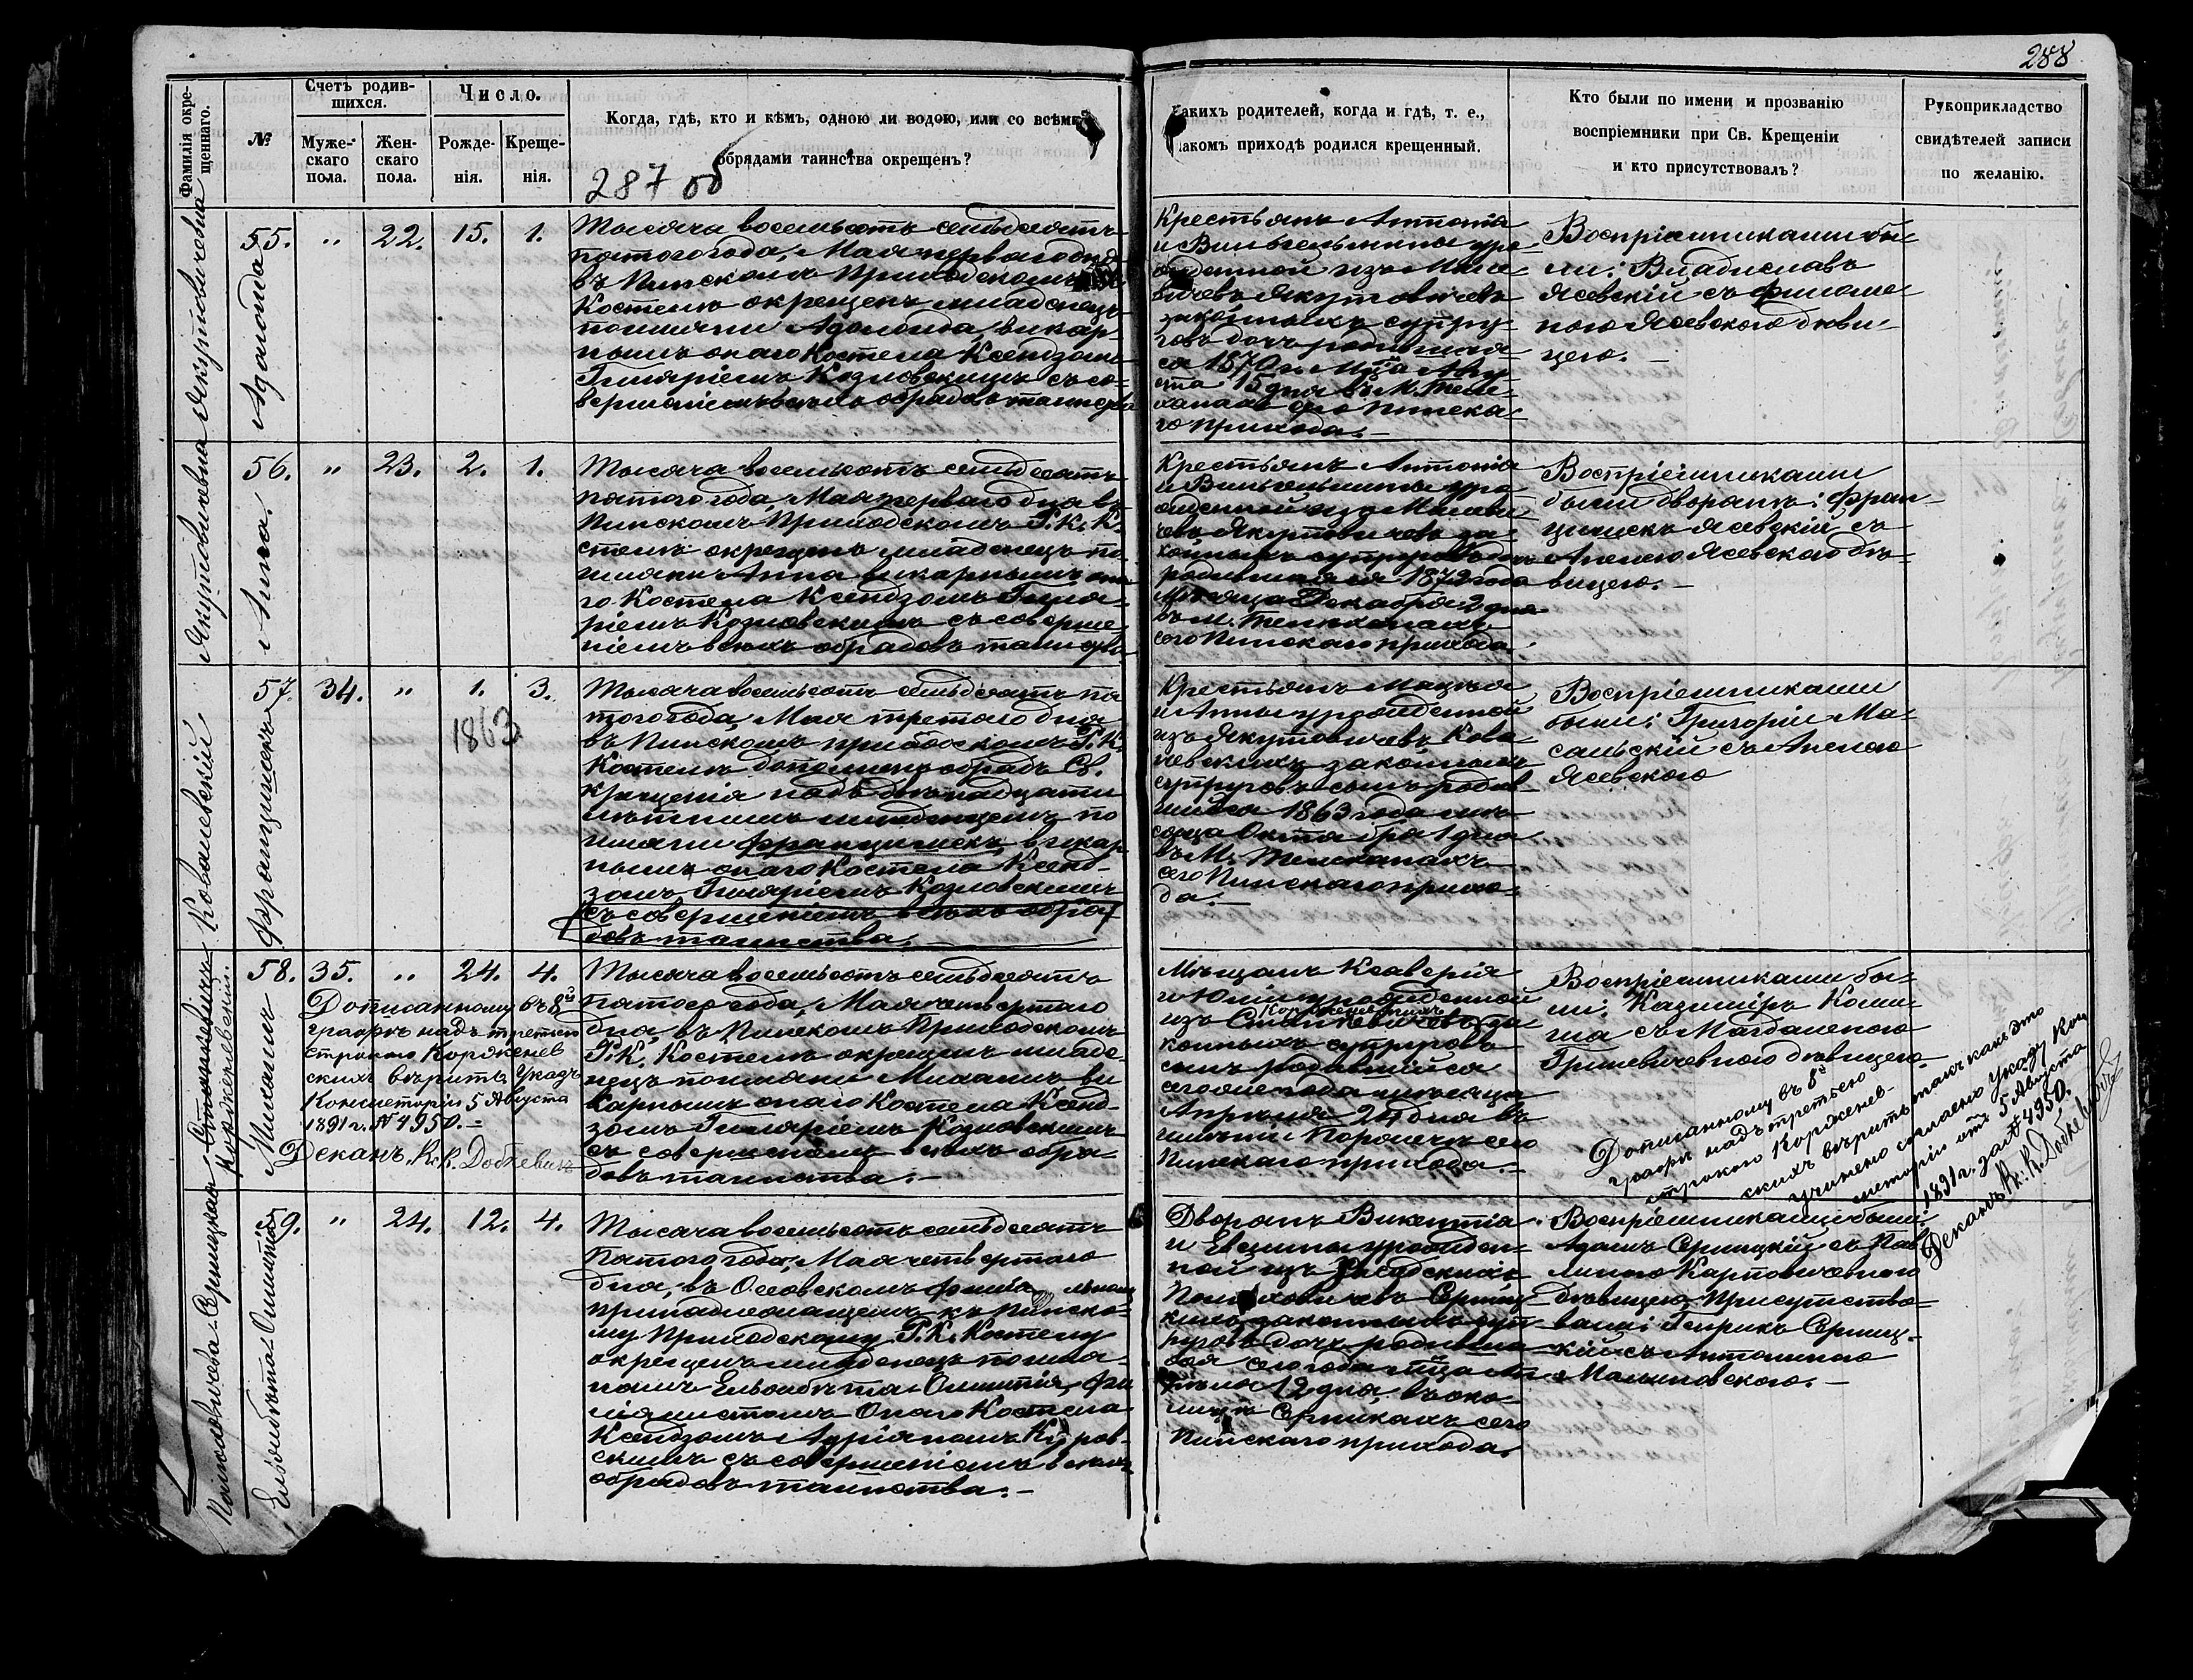 288
Фамилія окре-
щеннаго.
№
Счетъ родив-
шихся.
Муже-
скаго
пола.
Жен-
скаго
пола.
Число.
Рожде-
нія.
Креще-
нія.
Когда, гдѣ, кто и кѣмъ, одною ли водою, или со всѣми
обрядами таинства окрещенъ?
287 об
Какихъ родителей, когда и гдѣ, т. е.,
какомъ приходѣ родился крещенный.
Кто были по имени и прозванію
воспріемники при Св. Крещеніи
и кто присутствовалъ?
Рукоприкладство
свидѣтелей записи
по желанію.
Якутовичевна Якутовичевна
Адамонда
55. „ 22. 15. 1.
Тысяча восемьсотъ семьдесятъ
пятого года, Мая первого дня
въ Пинскомъ Приходскомъ
Костелѣ окрещенъ младенецъ
по имяни викар-
нымъ онаго Костела Ксендзомъ
Гиляріемъ Козловскимъ съ со-
вершеніемъ всѣхъ обрядовъ таинства
Крестьянъ Антонія
и Вильгельмины уро-
жденной изъ
Якутовичевъ
законныхъ супру-
говъ дочь родивша-
ся 1870 г. М-ца Авгу-
ста 15 дня въ М. Теле-
ханахъ сего Пинска-
го прихода. —
Воспріемниками бы-
ли: Владиславъ
Ясевскій съ Филоме-
ною Ясевскою дѣви-
цею. —
Анна.
56. „ 23. 2. 1.
Тысяча восемьсотъ семьдесятъ
пятого года, Мая первого дня въ
Пинскомъ Приходскомъ Р. К. Ко-
стелѣ окрещенъ младенецъ по
имяни Анна викарнымъ она-
го Костела Ксендзомъ Гиля-
ріемъ Козловскимъ съ соверше-
ніемъ всѣхъ обрядовъ таинства
Крестьянъ Антонія
и Вильгельмины уро-
жденной изъ
Якутовичевъ за-
конныхъ супруговъ дочь
родившаяся 1872 года
Мѣсяца Декабря 2 дня
въ М. Телеханахъ
сего Пинскаго прихода.
Воспріемниками
были дворяне: Фран-
цишекъ Ясевскій съ
Анелею Ясевскою дѣ-
вицею. —
Ковалевскій
Францишекъ
57. 34. „ 1. 3.
1863
Тысяча восемьсотъ семьдесятъ пя-
того года, Мая третьего дня
въ Пинскомъ приходскомъ Р. К.
Костелѣ дополненъ обрядъ Св.
крещенія надъ двѣнадцати
лѣтнимъ младенцемъ по
имяни Францишекъ викар-
нымъ онаго Костела Ксенд-
зомъ Гиляріемъ Козловскимъ
съ совершеніемъ всѣхъ обря-
довъ таинства.
Крестьянъ Мацѣя
и Анны урожденной
изъ Якутовичевъ Кова-
левскихъ законныхъ
супруговъ сынъ родив-
шійся 1863 года мѣ-
сяца Октября 1 дня
въ М. Телеханахъ
сего Пинскаго прихо-
да. —
Воспріемниками
были: Григорій Ма-
сальскій съ Анелею
Ясевскою
Станкевичъ
Корженевскій.
Михаилъ
58. 35. „ 24. 4.
Дописанному въ 8й
графѣ надъ третьею
строкою Корженев
скихъ вѣрить Указъ
Консисторіи 5 Августа
1891 г. № 4950. —
Деканъ К. К. Добкевичъ
Тысяча восемьсотъ семьдесятъ
пятого года, Мая четвертаго
дня, въ Пинскомъ Приходскомъ
Р. К. Костелѣ окрещенъ младе-
нецъ по имяни Михаилъ ви-
карнымъ онаго Костела Ксенд-
зомъ Гиляріемъ Козловскимъ
съ совершеніемъ всѣхъ обря-
довъ таинства. —
Мѣщанъ Ксаверія
и Юліи урожденной
Корженевскихъ
изъ Станкевичевъ за-
конныхъ супруговъ
сынъ родившійся
сего же года мѣсяца
Апрѣля 24 дня въ
имѣніи Порѣчьи сего
Пинскаго прихода. —
Воспріемниками бы-
ли: Казиміръ
съ Магдаленою
Гриневичевною дѣвицею
Дописанному въ 8й
графѣ надъ третьею
строкою Корженев-
скихъ вѣрить такъ какъ это
учинено согласно указу Кон
систоріи отъ 5 Августа
1891 г. за № 4950.
Деканъ К. К. Добкевичъ
Поплавичева-Серницкая
Ельжбѣта-Олимпія
59. „ 24. 12. 4.
Тысяча восемьсотъ семьдесятъ
пятого года, Мая четвертаго
дня, въ Осовскомъ
принадлежащемъ къ Пинско-
му Приходскому Р. К. Костелу
окрещенъ младенецъ по имя-
намъ Ельжбѣта-Олимпія, фи-
ліялистомъ Онаго Костела
Ксендзомъ Адріяномъ Куров-
скимъ съ совершеніемъ всѣхъ
обрядовъ таинства. —
Дворянъ Викентія
и Евецины урожден-
ной изъ
законныхъ суп-
руговъ дочь родивша-
яся сего года М-ца Ап-
рѣля 12 дня, въ око-
лицѣ Серникахъ сего
Пинскаго прихода.
Воспріемниками были:
Адамъ Серницкій съ Пав-
линою Карповичевною
дѣвицею, Присутство-
вали: Генрихъ Серниц-
кій съ Антониною
Малиновскою. —